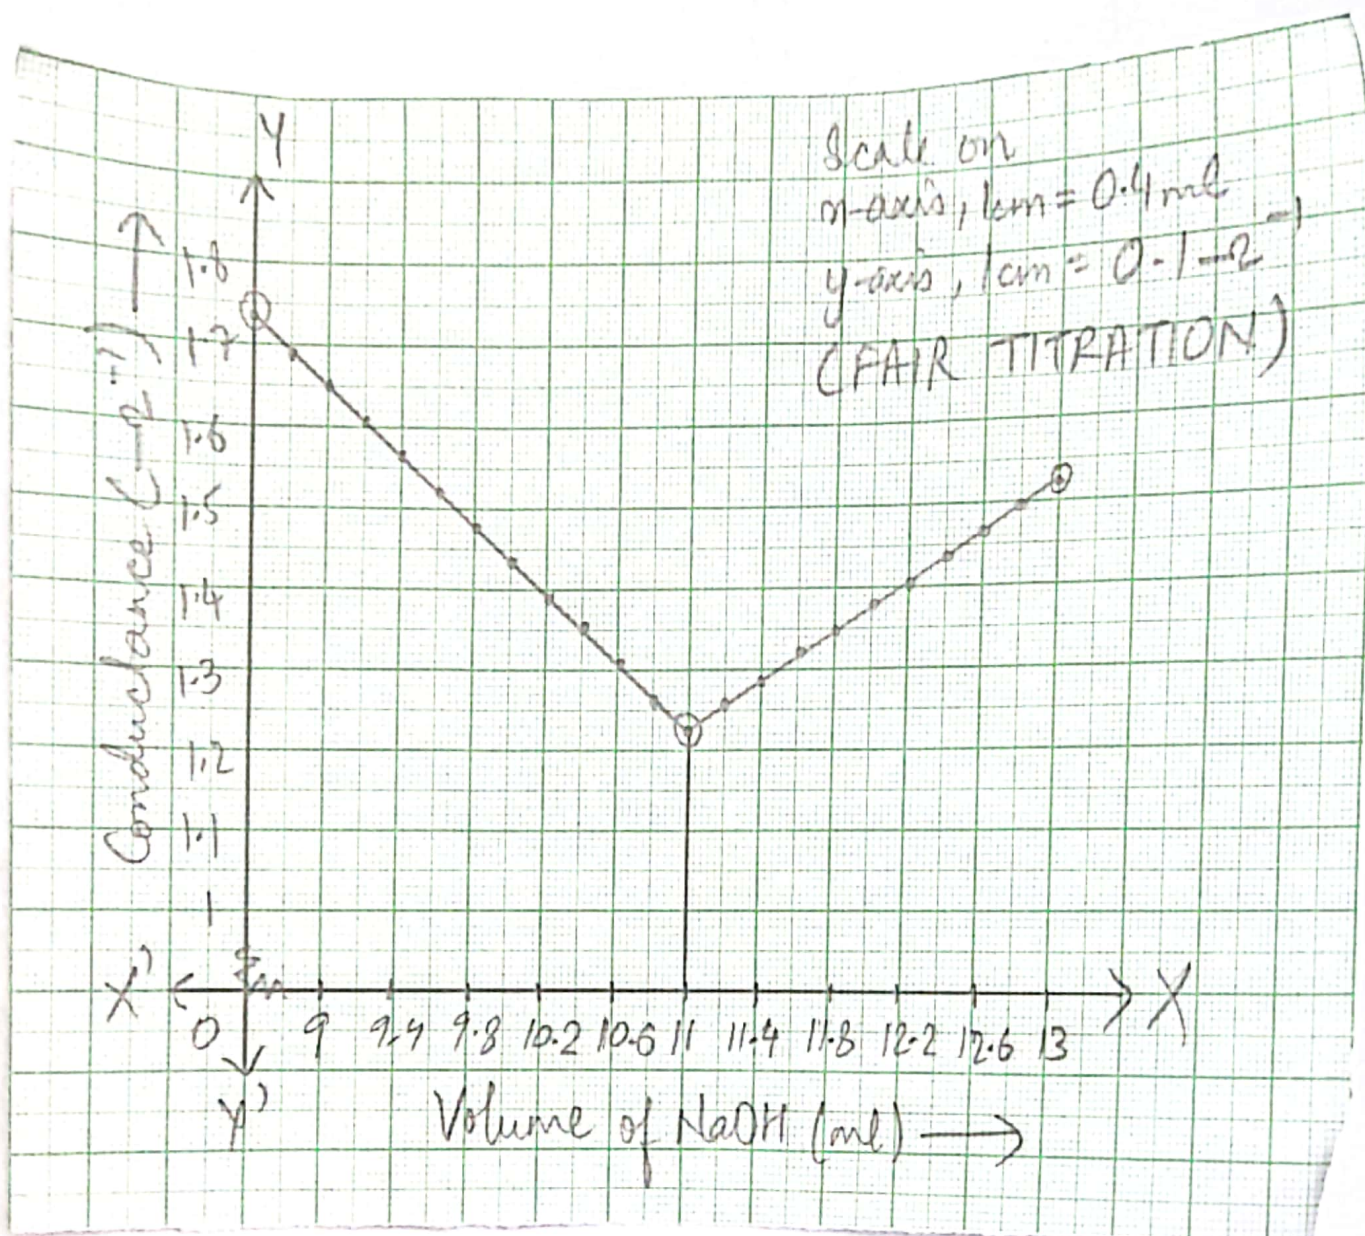 Y
Scale on
x-axis, 1cm = 0.4 ml
y-axis, 1cm = 0.1 Ω⁻¹
(FAIR TITRATION)
Conductance (Ω⁻¹) →
1.8
1.7
1.6
1.5
1.4
1.3
1.2
1.1
1
X' X
0 9 9.4 9.8 10.2 10.6 11 11.4 11.8 12.2 12.6 13
Y'
Volume of NaOH (ml) →